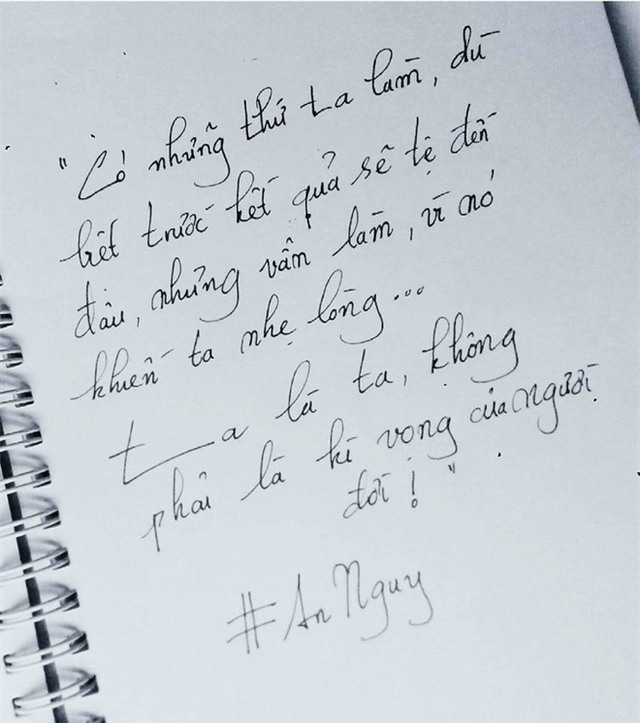 "Có những thứ ta làm, dù
biết trước kết quả sẽ tệ đến
đâu, nhưng vẫn làm, vì nó
khiến ta nhẹ lòng...
ta là ta, không
phải là kì vọng của người
đời!"
#An Nguy